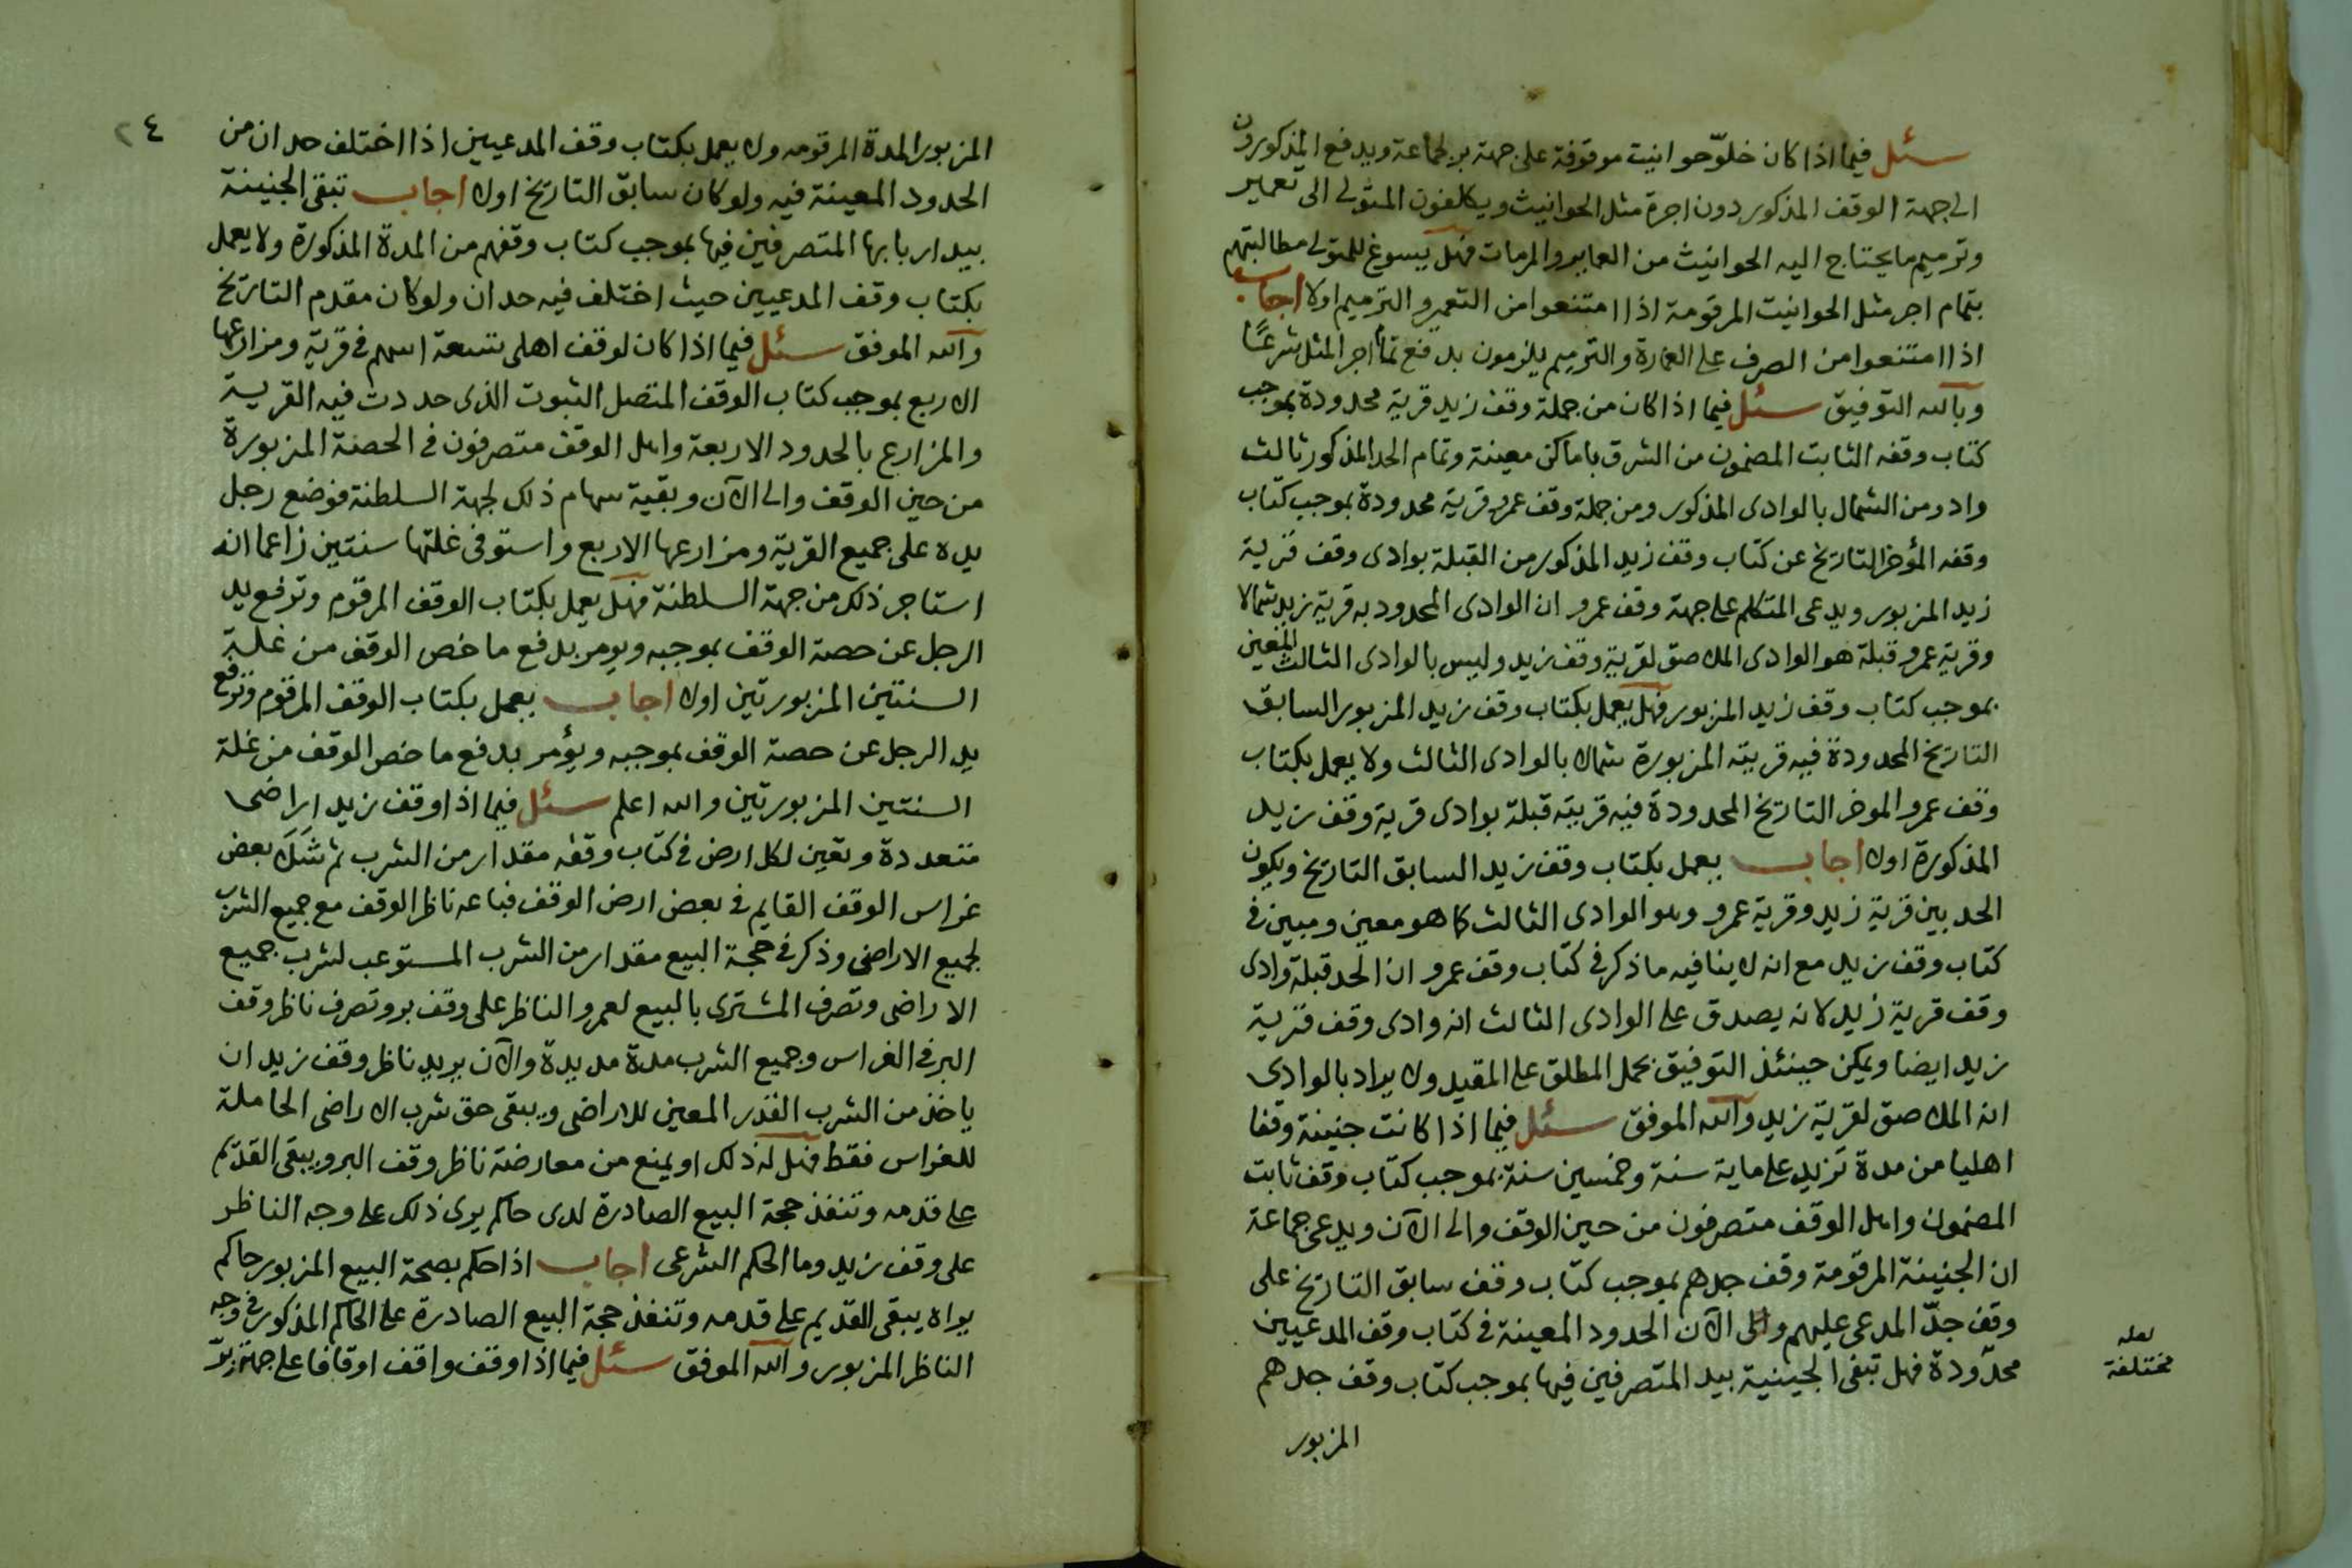 سئل فيما اذا كان خلوّ حوانيت موقوفة على جهة بر لجماعة ويدفع المذكورون
الى جهة الوقف المذكور دون اجرة مثل الحوانيت ويكلفون المتولى الى تعمير
وترميم ما يحتاج اليه الحوانيث من العماير والمرمات فهل يسوغ للمتولى مطالبتهم
بتمام اجر مثل الحوانيت المرقومة اذا امتنعوا من التعمير والترميم اولا اجاب
اذا امتنعوا من الصرف على العمارة والترميم يلزمون بدفع تمام اجر المثل شرعًا
وبالله التوفيق سئل فيما اذا كان من جملة وقف زيد قرية محدودة بموجب
كتاب وقفه الثابت المضمون من الشرق باماكن معينة وتمام الحد المذكور ثالث
واد ومن الشمال بالوادى المذكور ومن جملة وقف عمرو قرية محدودة بموجب كتاب
وقفه المؤخر التاريخ عن كتاب وقف زيد المذكور من القبلة بوادى وقف قرية
زيد المزبور ويدعى المتكلم على جهة وقف عمرو ان الوادى المحدود به قرية زيد شمالا
وقرية عمرو قبلة هو الوادى الملاصق لقرية وقف زيد وليس بالوادى الثالث المعين
بموجب كتاب وقف زيد المزبور فهل يعمل بكتاب وقف زيد المزبور السابق
التاريخ المحدودة فيه قريته المزبورة شمالا بالوادى الثالث ولا يعمل بكتاب
وقف عمرو الموخر التاريخ المحدودة فيه قريته قبلة بوادى قرية وقف زيد
المذكورة اولا اجاب يعمل بكتاب وقف زيد السابق التاريخ ويكون
الحد بين قرية زيد وقرية عمرو وهو الوادى الثالث كما هو معين ومبين فى
كتاب وقف زيد مع انه لا ينافيه ما ذكر فى كتاب وقف عمرو ان الحد قبلة وادى
وقف قرية زيد لانه يصدق على الوادى الثالث انه وادى وقف قرية
زيد ايضا ويمكن حينئذ التوفيق بحمل المطلق على المقيد ولا يراد بالوادى
انه الملاصق لقرية زيد والله الموفق سئل فيما اذا كانت جنينة وقفا
اهليا من مدة تزيد على ماية سنة وخمسين سنة بموجب كتاب وقف ثابت
المضمون واهل الوقف متصرفون من حين الوقف والى الآن ويدعى جماعة
ان الجنينة المرقومة وقف جدهم بموجب كتاب وقف سابق التاريخ على
وقف جدّ المدعى عليهم والى الآن الحدود المعينة فى كتاب وقف المدعيين
محدّودة فهل تبقى الجنينية بيد المتصرفين فيها بموجب كتاب وقف جدهم
لعله
مختلفة
المزبور
٢٤
المزبور المدة المرقومه ولا يعمل بكتاب وقف المدعيين اذا اختلف حدان من
الحدود المعينة فيه ولو كان سابق التاريخ اولا اجاب تبقى الجنينة
بيد اربابها المتصرفين فيها بموجب كتاب وقفهم من المدة المذكورة ولا يعمل
بكتاب وقف المدعيين حيث اختلف فيه حدان ولو كان مقدم التاريخ
والله الموفق سئل فيما اذا كان لوقف اهلى تسعة اسهم فى قرية ومزارعها
الاربع بموجب كتاب الوقف المتصل الثبوت الذى حددت فيه القرية
والمزارع بالحدود الاربعة واهل الوقف متصرفون فى الحصة المزبورة
من حين الوقف والى الآن وبقية سهام ذلك لجهة السلطنة فوضع رجل
يده على جميع القرية ومزارعها الاربع واستوفى غلتها سنتين زاعما انه
استاجر ذلك من جهة السلطنة فهل يعمل بكتاب الوقف المرقوم وترفع يد
الرجل عن حصة الوقف بموجبه ويومر بدفع ما خص الوقف من غلة
السنتين المزبورتين اولا اجاب يعمل بكتاب الوقف المرقوم وترفع
يد الرجل عن حصة الوقف بموجبه ويؤمر بدفع ما خص الوقف من غلة
السنتين المزبورتين والله اعلم سئل فيما اذا وقف زيد اراضى
متعددة وتعين لكل ارض فى كتاب وقفه مقدار من الشرب ثم شَكَ بعض
غراس الوقف القايم فى بعض ارض الوقف فباعه ناظر الوقف مع جميع الشرب
لجميع الاراضى وذكر فى حجة البيع مقدار من الشرب المستوعب لشرب جميع
الاراضى وتصرف المشترى بالبيع لعمرو الناظر على وقف بر وتصرف ناظر وقف
البر فى الغراس وجميع الشرب مدة مديدة والآن يريد ناظر وقف زيد ان
ياخذ من الشرب القدر المعين للاراضى ويبقى حق شرب الاراضى الحاملة
للغراس فقط فهل له ذلك او يمنع من معارضة ناظر وقف البر ويبقى القديم
على قدمه وتنفذ حجة البيع الصادرة لدى حاكم يرى ذلك على وجه الناظر
على وقف زيد وما الحكم الشرعى اجاب اذا حكم بصحة البيع المزبور حاكم
يراه يبقى القديم على قدمه وتنفذ حجة البيع الصادرة على الحاكم المذكور فى وجه
الناظر المزبور والله الموفق سئل فيما اذا وقف واقف اوقافا على جهتى برّ